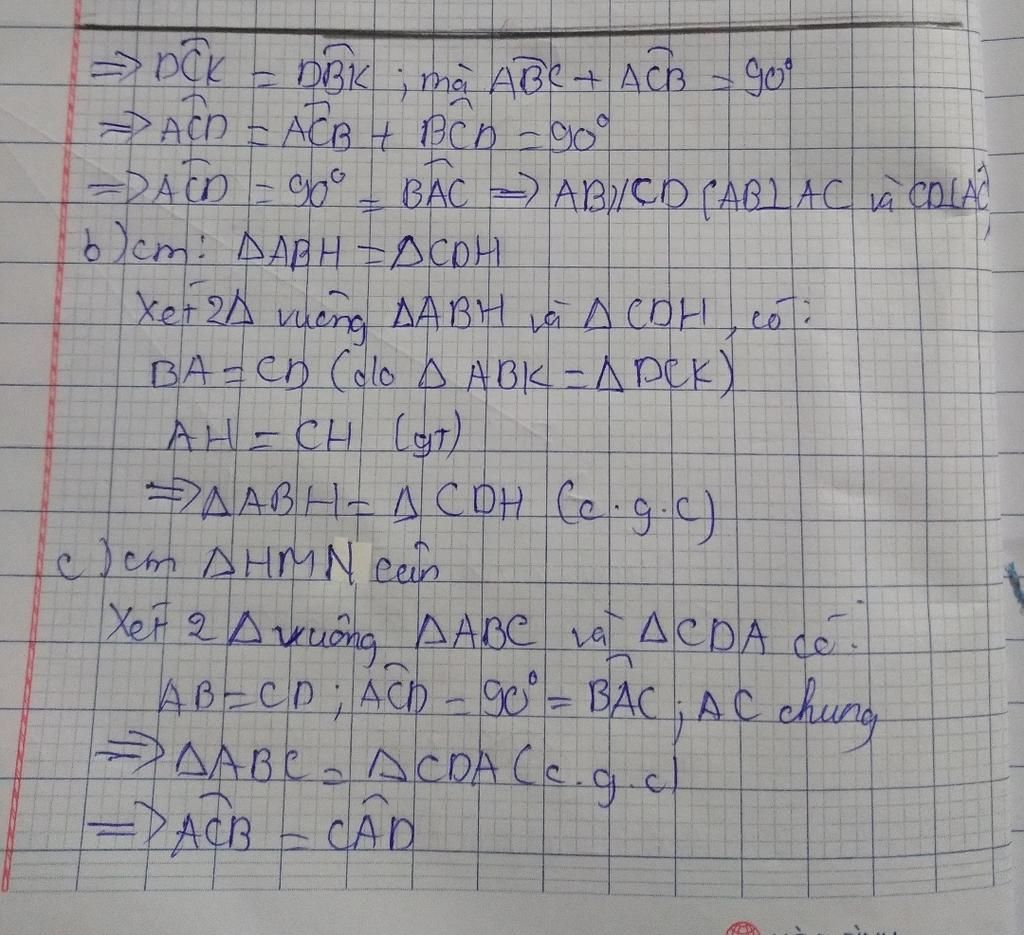 ⇒ DĈK = DB̂K ; mà AB̂C + AĈB = 90°
⇒ AĈD = AĈB + BĈD = 90°
⇒ AĈD = 90° = BÂC ⇒ AB//CD (AB⊥AC và CD⊥AC)
b) cm: ΔABH = ΔCDH
Xét 2Δ vuông ΔABH và ΔCDH, có:
BA = CD (do ΔABK = ΔDCK)
AH = CH (gt)
⇒ ΔABH = ΔCDH (c.g.c)
c) cm ΔHMN cân
Xét 2Δ vuông ΔABC và ΔCDA có:
AB = CD ; AĈD = 90° = BÂC ; AC chung
⇒ ΔABC = ΔCDA (c.g.c)
⇒ AĈB = CÂD